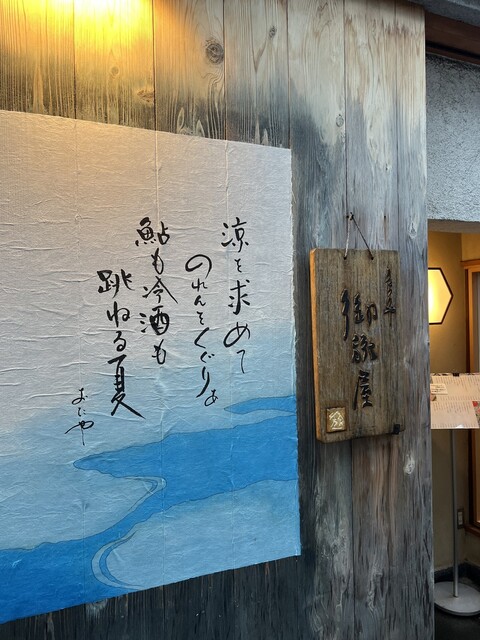 涼を求めて
のれんをくぐりぁ
鮎も冷酒も
跳ねる夏
おたや
御旅屋